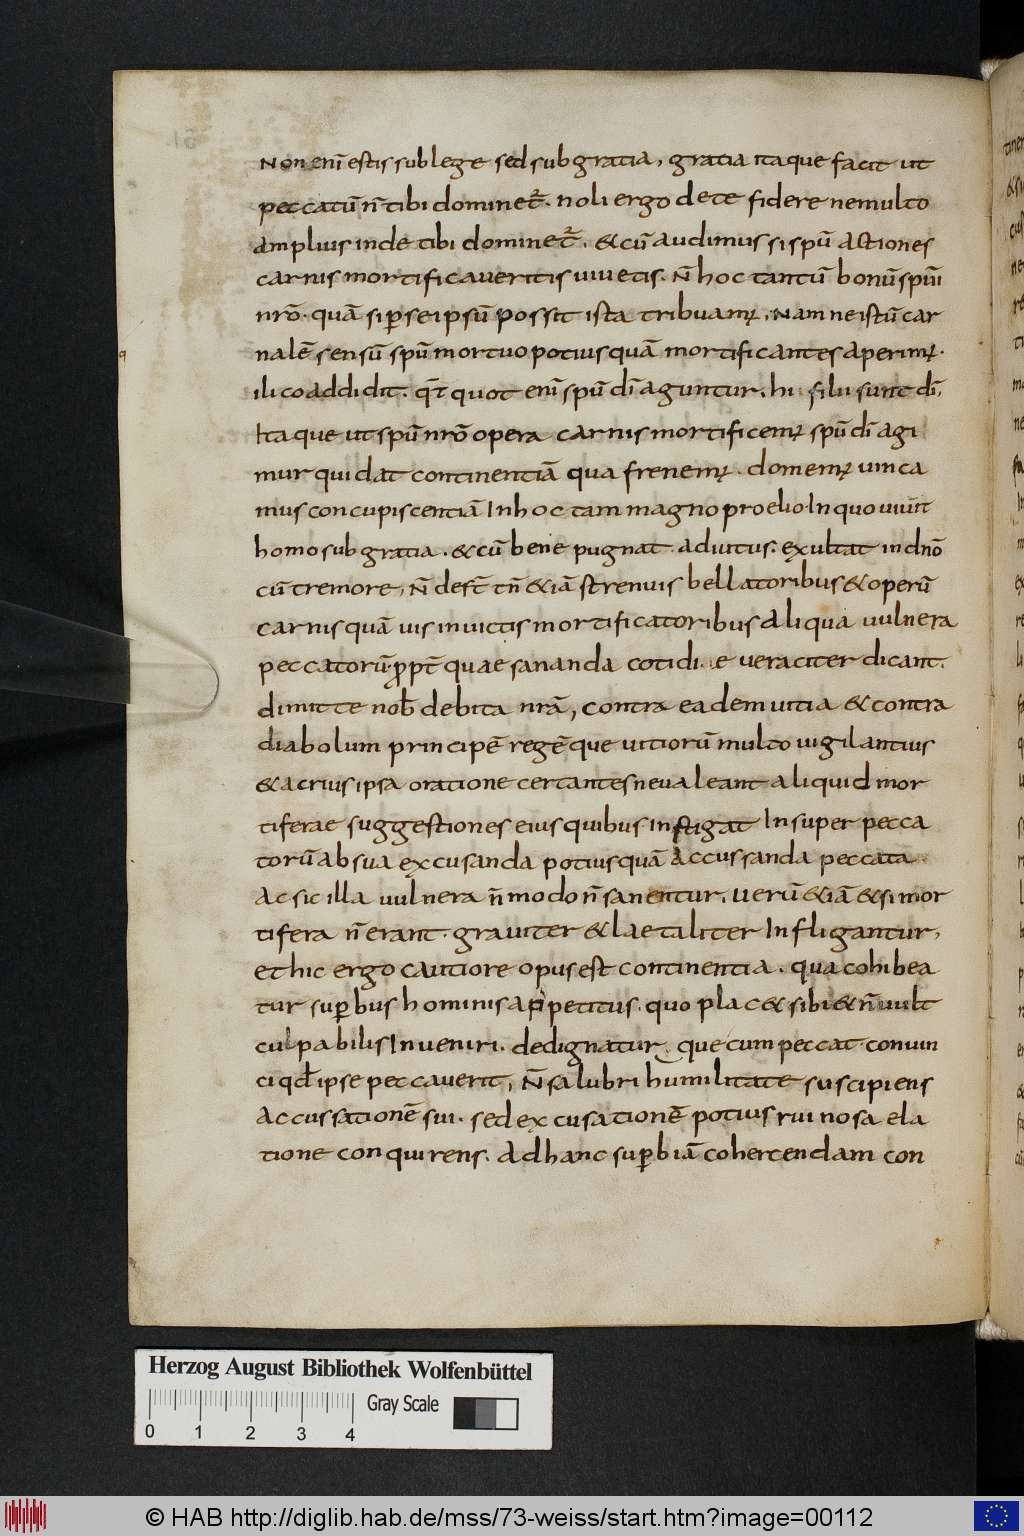 Non eni͞ estis sub lege sed sub gratia, gratia itaque facit ut
peccatū n̄ tibi dominet᷑. noli ergo de te fidere ne multo
amplius inde tibi dominet᷑. & cū audimus si spū actiones
carnis mortificaveritis uiuetis. N̄ hoc tantū bonū spūi
nrō. quā si ꝑ se ipsū possit ista tribuamꝰ. Nam ne istū car
nalē sensū spū mortuo potius quā mortificantes aperimꝰ.
ilico addidit. qm̄ quot eni͞ spū dī aguntur. hi filii sunt dī.
Itaque ut spū nrō opera carnis mortificemꝰ spū dī agi
mur qui dat continentiā qua frenemꝰ. domemꝰ uinca
mus concupiscentiā In hoc tam magno proelio In quo uiuit
homo sub gratia. & cū bene pugnat adiutus. exultat in dn̄o
cū tremore, N̄ def̄t tn̄ &iā strenuis bellatoribus & operū
carnis quā uis inuictis mortificatoribus aliqua uulnera
peccatorū ꝓpt̄ quae sananda cotidie ueraciter dicant.
dimitte nob̄ debita nrā, contra eadem uitia & contra
diabolum principē regēque uitiorū multo uigilantius
& acrius ipsa oratione certantes ne ualeant aliquid mor
tiferae suggestiones eius quibus instigat Insuper pecca
torū ab sua excusanda potius quā accussanda peccata
Ac sic illa uulnera n̄ modo n̄ sanentur. uerū &iā & si mor
tifera n̄ erant. grauiter & laetaliter Infligantur,
et hic ergo cautiore opus est continentia. qua cohibea
tur suꝑbus hominis appetitus. quo plac& sibi & n̄ uult
culpabilis Inueniri. dedignatur que cum peccat conuin
ci qd̄ ipse peccauerit, N̄ salubri humilitate suscipiens
accussationē sui. sed excusationē potius ruinosa ela
tione conquirens. Ad hanc suꝑbiā cohercendam con
Herzog August Bibliothek Wolfenbüttel
Gray Scale
0 1 2 3 4
© HAB http://diglib.hab.de/mss/73-weiss/start.htm?image=00112